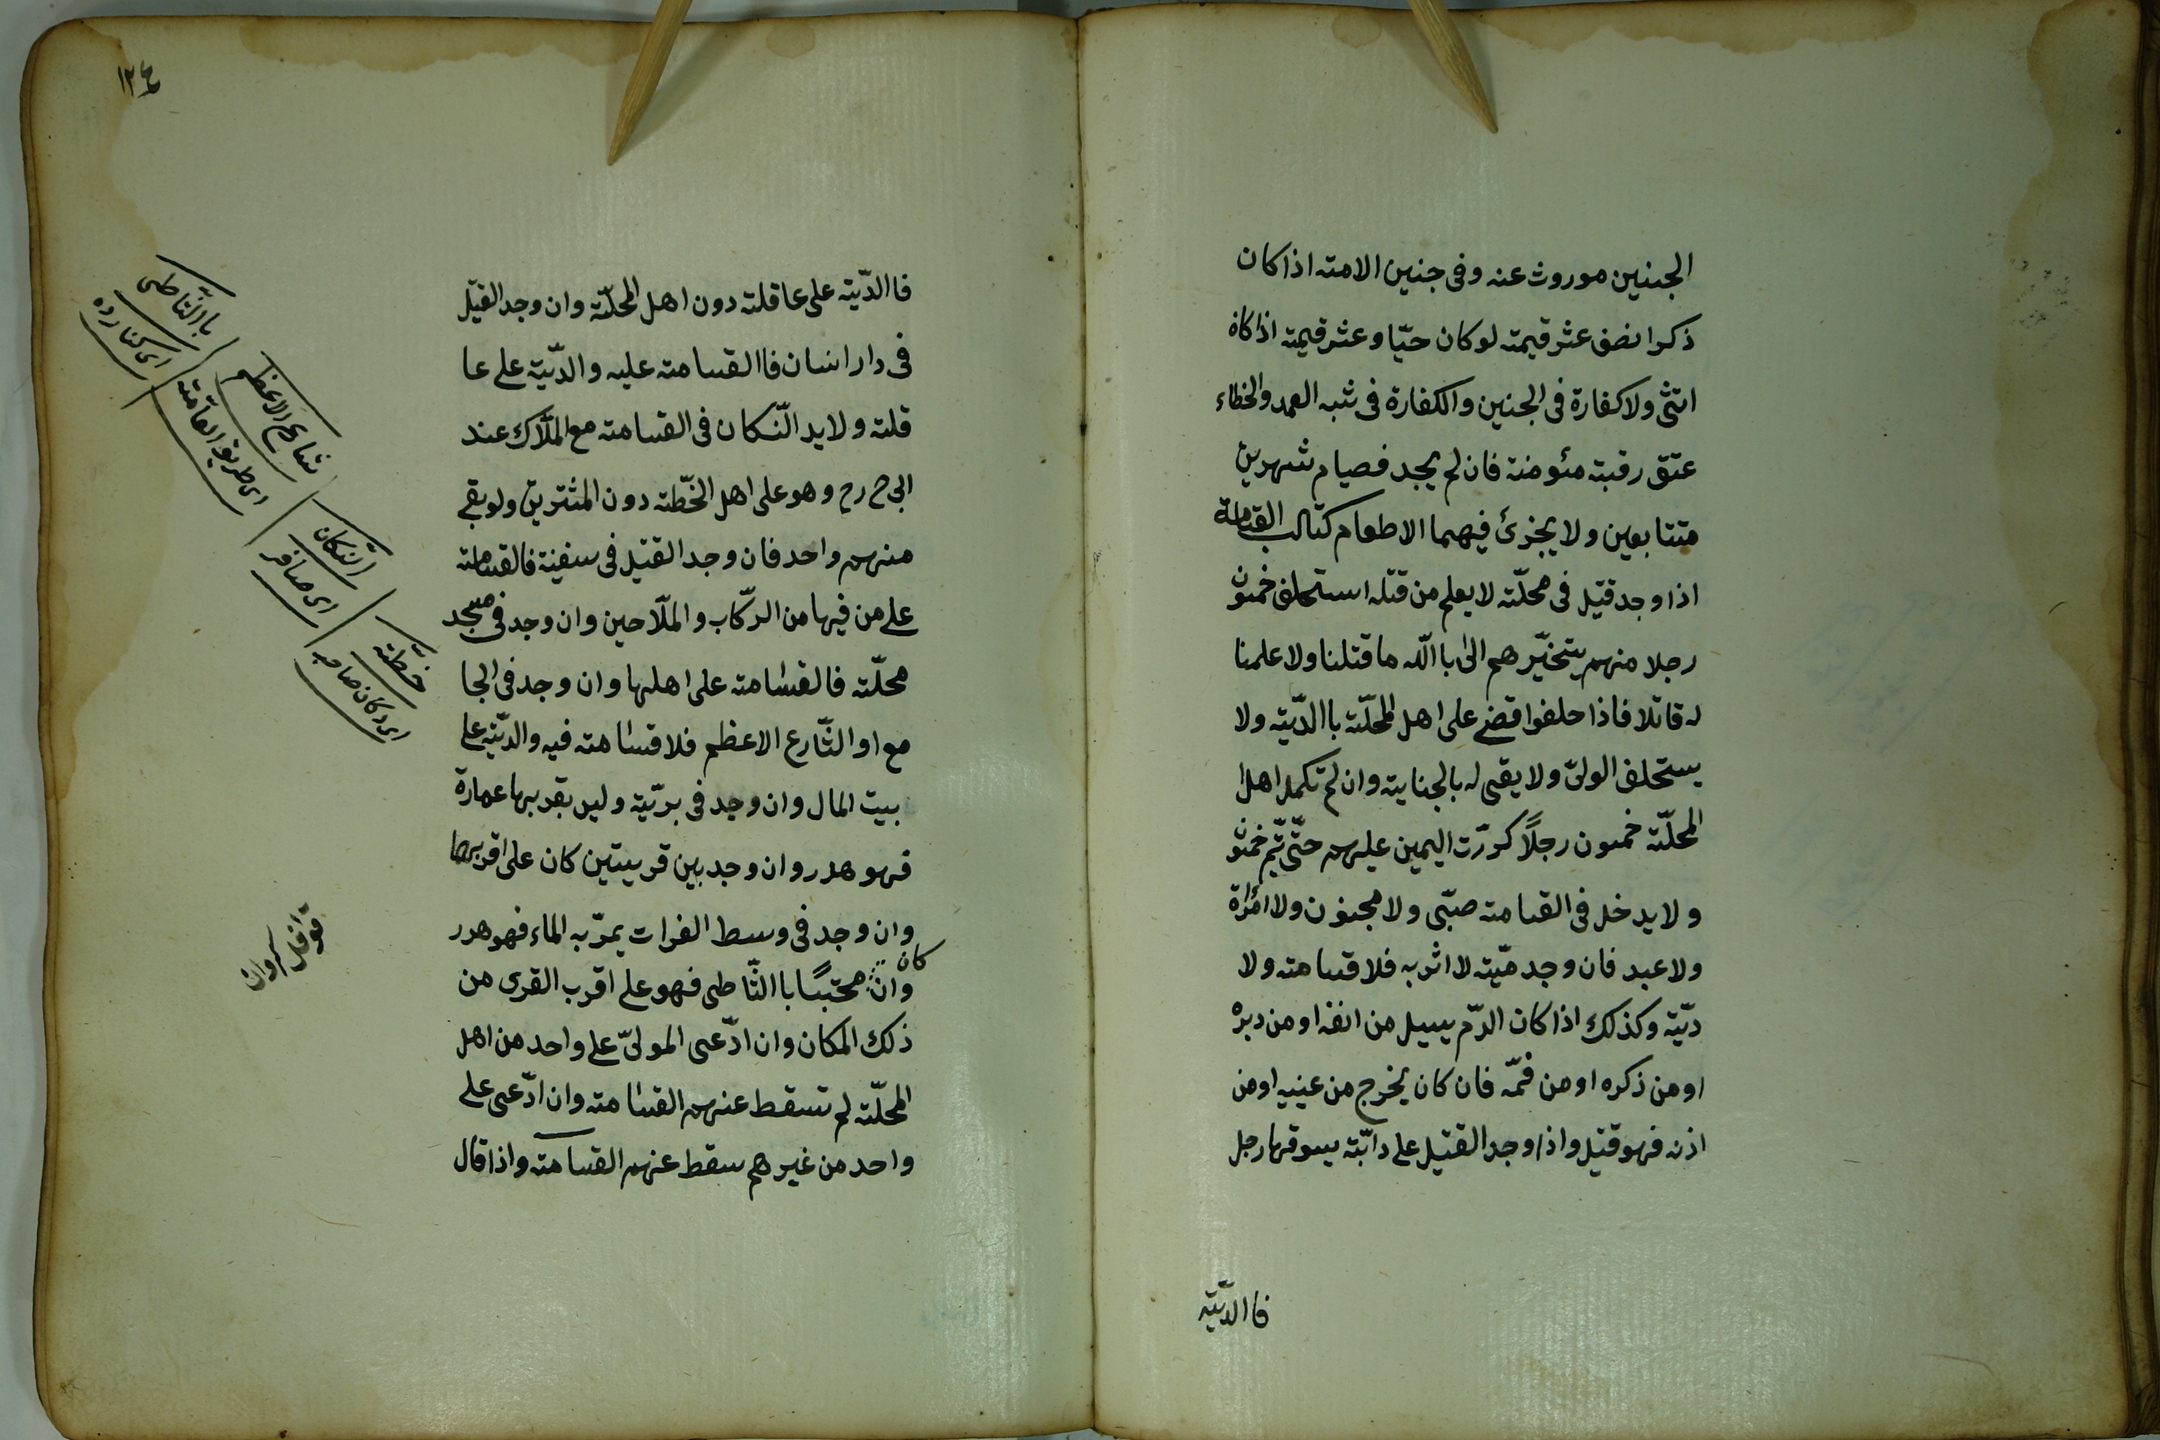 الجنين موروث عنه وفى جنين الامته اذا كان
ذكرا نصف عشر قيمته لو كان حيّا وعشر قيمته اذا كان
انثى ولا كفارة فى الجنين والكفارة فى شبه العمد والخطاء
عتق رقبة مئومنة فان لم يجد فصيام شهرين
متتابعين ولا يجزئ فيهما الاطعام كتاب القسامة
اذا وجد قتيل فى محلّته لا يعلم من قتله استحلف خمسون
رجلا منهم يتخيّرهم الى باالله ما قتلنا ولا علمنا
له قاتلا فاذا حلفوا قضى على اهل المحلّته باالدّيته ولا
يستحلف الولىّ ولا يقضى له بالجنايته وان لم تكمل اهل
المحلّته خمسون رجلاً كررّت اليمين عليهم حتّى تتّم خمسون
ولا يدخل فى القسامته صبّى ولا مجنون ولا امراة
ولا عبد فان وجد ميّته لا اثر به فلا قسامته ولا
ديّته وكذلك اذا كان الدّم يسيل من انفه او من دبره
او من ذكره او من فمّه فان كان يخرج من عينيه او من
اذنه فهو قتيل واذا وجد القتيل على دابّته يسوقها رجل
فاالدّيّته
١٢٤
فاالدّيته على عاقلته دون اهل المحلّته وان وجد القتيل
فى دار انسان فاالقسامته عليه والدّيّته على عا
قلته ولا يد السّكان فى القسامته مع الملّاك عند
ابى ح رح وهو على اهل الخّطته دون المشترين ولو بقى
منهم واحد فان وجد القتيل فى سفينة فالقسامته
على من فيها من الركّاب والملّاحين وان وجد فى مسجد
محلّته فالقسامته على اهلها وان وجد فى الجا
مع او الشّارع الاعظم فلا قسامته فيه والديّته على
بيت المال وان وجد فى بريّته وليس بقربها عمارة
فهو هدر وان وجد بين قريتين كان على اقربهما
وان وجد فى وسط الفرات يمرّ به الماء فهو هدر
كان
وان محتبسًا باالشّاطى فهو على اقرب القرى من
ذلك المكان وان ادّعى المولىّ على واحد من اهل
المحلّته لم تسقط عنهم القسامته وان ادّعى على
واحد من غيرهم سقط عنهم القسامته واذا قال
باالشّاطى
اى كنارده
شارع الاعظم
اى طريق العامّته
السّكان
اى مسافر
خطّته
اى دكان صاحبه
قوافل